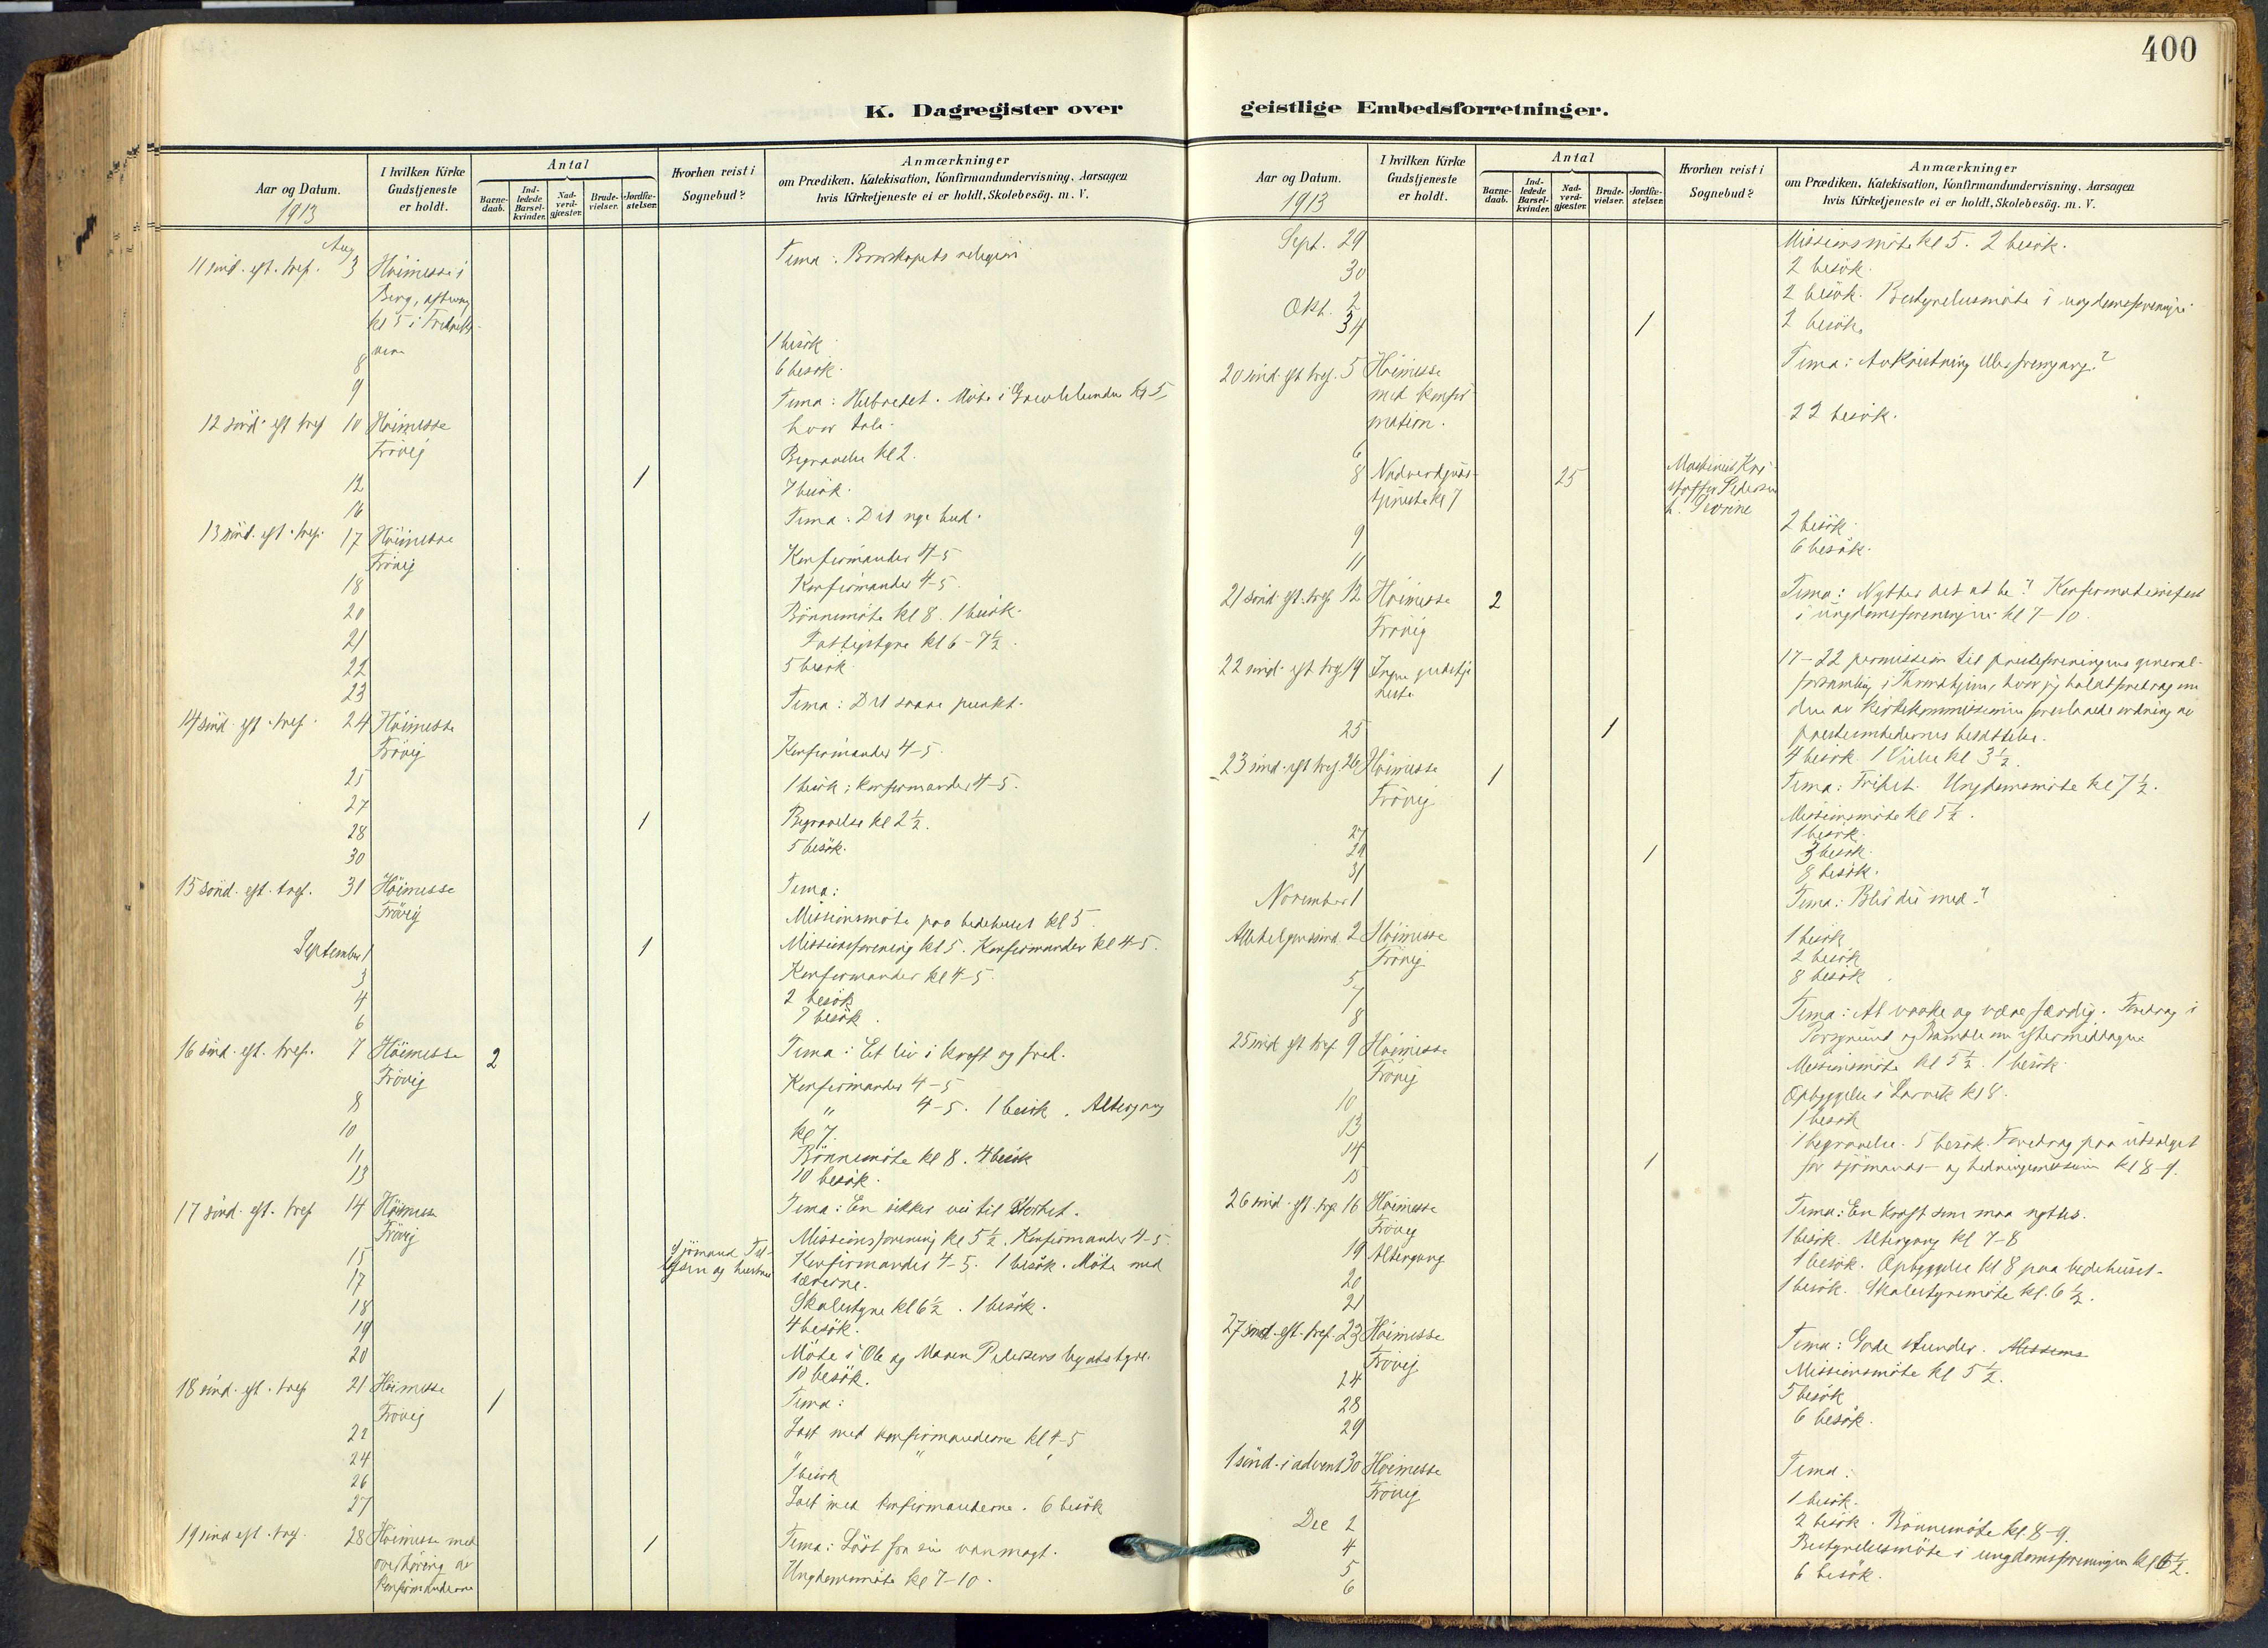 400
K. Dagregister over
Aar og Datum.
1913
I hvilken Kirke
Gudstjeneste
er holdt.
Antal
Barne-
daab.
Ind-
ledede
Barsel-
kvinder.
Nad-
verd-
gjæster.
Brude-
vielser.
Jordfæ-
stelser.
Hvorhen reist i
Sognebud?
Anmærkninger
om Prædiken, Katekisation, Konfirmandundervisning, Aarsagen
hvis Kirketjeneste ei er holdt, Skolebesög. m. V.
Aug
11 sönd. eft. tref. 3 Höimesse i Tema: religion
Berg,
kl 5 i
1 besök
8 6 besök.
9 Tema: Møte i kl 5
12 sönd. eft tref 10 Höimesse hvor
Frövig Begravelse kl 2.
12 1 7 besök.
16 Tema: Det nye bud.
13 sönd. eft. tref. 17 Höimesse
Frövig Konfirmander 4-5
18 Konfirmander 4-5.
20 Bönnemöte kl 8. 1 besök.
21 Fattigstyre kl 6-7½.
22 5 besök
23 Tema: Det saare punkt.
14 sönd. eft. tref. 24 Höimesse
Frövig Konfirmander 4-5.
25 1 besök; konfirmander 4-5.
27
28 1 Begravelse kl 2½.
30 5 besök.
15 sönd. eft. tref. 31 Höimesse Tema:
Frövig Missionsmöte paa bedehuset kl 5
September 1 1 Missionsforening kl 5. Konfirmander kl 4-5.
3 Konfirmander kl 4-5.
4 2 besök
6 7 besök.
16 sönd. eft. tref. 7 Höimesse 2 Tema: Et liv i kraft og fred.
Frövig Konfirmander 4-5
8 " 4-5. 1 besök. Altergang
10 kl 7.
11 Bönnemöte kl 8. 4 besök
13 10 besök.
17 sönd. eft. tref 14 Höimesse Tema: En sikker vei til storhet.
Frövig Missionsforening kl 5½. Konfirmander 4-5
15 Sjömand og hustru Konfirmander 4-5. 1 besök. Möte med
17 lærerne.
18 Skolestyre kl 6½. 1 besök.
19 4 besök.
20 Möte i Ole og Maren Pedersens legatstyre.
10 besök.
18 sönd. eft. tref 21 Höimesse 1 Tema:
Frövig
22 Læst med konfirmanderne kl 4-5
24 " "
26 1 besök
27 Læst med konfirmanderne. 6 besök
19 sönd eft. tref. 28 Höimesse med 1 Tema: Löst fra sin vanmagt.
overhöring av Ungdomsmöte kl 7-10.
konfirmanderne
geistlige Embedsforretninger.
Aar og Datum.
1913
I hvilken Kirke
Gudstjeneste
er holdt.
Antal
Barne-
daab.
Ind-
ledede
Barsel-
kvinder.
Nad-
verd-
gjæster.
Brude-
vielser.
Jordfæ-
stelser.
Hvorhen reist i
Sognebud?
Anmærkninger
om Prædiken, Katekisation, Konfirmandundervisning, Aarsagen
hvis Kirketjeneste ei er holdt, Skolebesög. m. V.
Sept. 29 Missionsmöte kl 5. 2 besök.
30 2 besök.
Okt. 2 2 besök. Bestyrelsesmöte i ungdomsforeningen
3 4 1 2 besök.
20 sönd. eft tref. 5 Höimesse Tema: Avkristning eller fremgang?
med konfir-
mation. 22 besök.
6
8 Nadverdguds- 25 Kri-
tjeneste kl 7 stoffer Pedersen
9 2 besök.
11 6 besök.
21 sönd. eft. tref. 12 Höimesse 2 Tema: Nytter det at be? Konfirmationsfest
Frövig i ungdomsforeningen kl 7-10.
22 sönd. eft tref 19 Ingen gudstje-
neste 17-22 permission til presteforeningens general-
forsamling i Throndhjem, hvor jeg holdt foredrag om
den av kirkekommissionen foreslaaede ordning av
25 1 presteembedernes besættelse.
4 besök 1 Vielse kl 3½.
23 sönd. eft tref. 26 Höimesse 1 Tema: Frihet. Ungdomsmöte kl 7½.
Frövig Missionsmöte kl 5½.
27 1 besök.
29 1 3 besök
31 8 besök.
November 1 Tema: Blir du med?
Allehelgenssönd. 2 Höimesse 1 besök
Frövig 2 besök
5 8 besök
7
8 Tema: At vaake og være færdig. Foredrag i
25 sönd eft tref 9 Höimesse Porsgrund og Bamble om eftermiddagen
Frövig Missionsmöte kl 5½. 1 besök
10 Opbyggelse i Larvik kl 8.
13 1 besök
14 1 begravelse. 5 besök. Foredrag paa utsalget
15 1 for sjömands- og hedningemission kl 8-9.
26 sönd. eft. tref. 16 Höimesse Tema: En kraft som maa nyttes.
Fröveg 1 besök. Altergang kl 7-8
19 Altergang 1 besök. Opbyggelse kl 8 paa bedehuset.
20 1 besök. Skolestyremöte kl. 6½.
21
27 sönd. eft. tref. 23 Höimesse Tema: Gode stunder.
Fröveg Missionsmöte kl 5½.
24 5 besök
28 6 besök.
29
1 sönd. i advent 30 Höimesse Tema:
Fröveg 1 besök.
Dec 2 2 besök. Bönnemöte kl. 8-9.
4 Bestyrelsesmöte i ungdomsforeningen kl 6½.
5 6 besök.
6